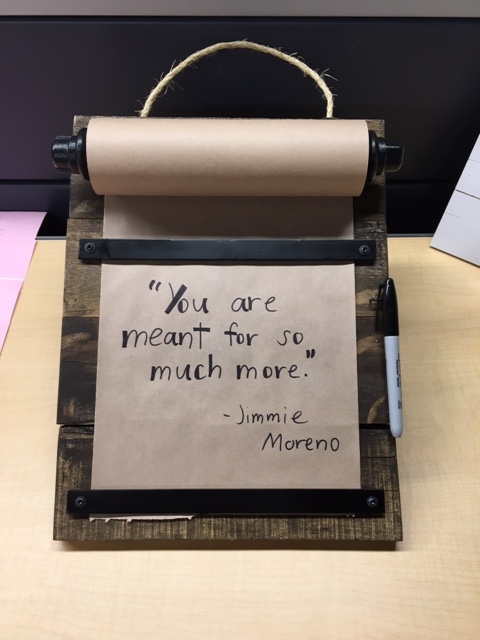 "You are
meant for so
much more."
-Jimmie
Moreno